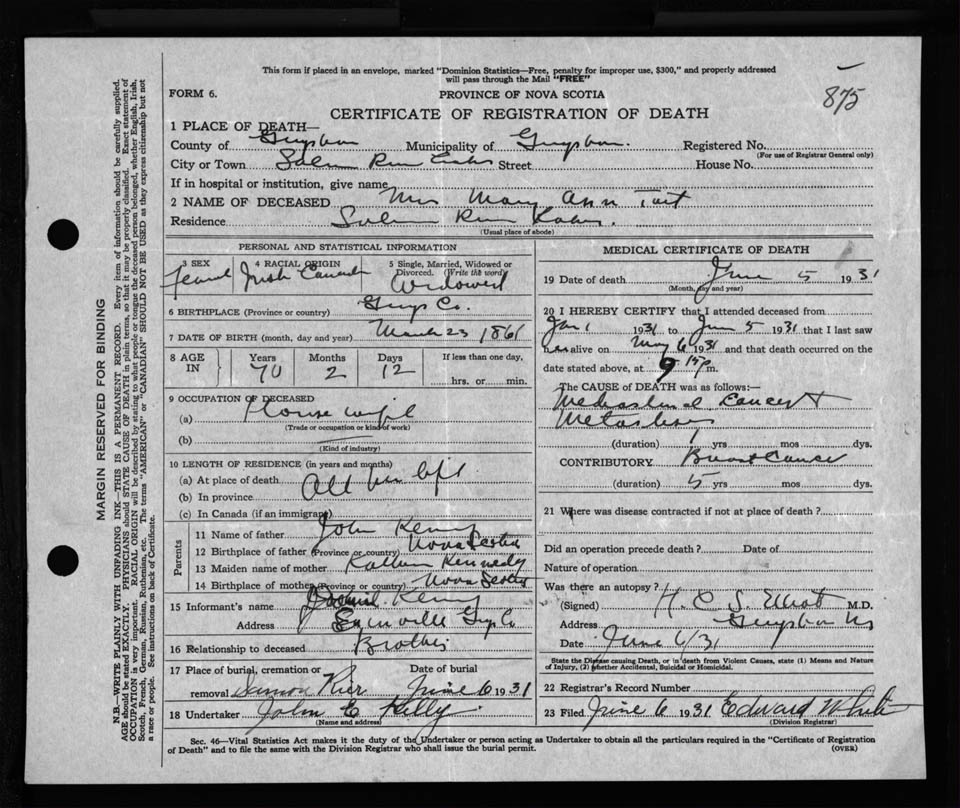 This form if placed in an envelope, marked "Dominion Statistics—Free, penalty for improper use, $300," and properly addressed
will pass through the Mail "FREE"
875
FORM 6.
PROVINCE OF NOVA SCOTIA
CERTIFICATE OF REGISTRATION OF DEATH
1 PLACE OF DEATH—
County of Guysboro Municipality of Guysboro. Registered No.
(For use of Registrar General only)
City or Town Street House No.
If in hospital or institution, give name
2 NAME OF DECEASED Mrs Mary Ann Tait
Residence
(Usual place of abode)
PERSONAL AND STATISTICAL INFORMATION
3 SEX
4 RACIAL ORIGIN
5 Single, Married, Widowed or
Divorced. (Write the word)
Female
Irish Canadian
Widowed
6 BIRTHPLACE (Province or country) Guys Co.
7 DATE OF BIRTH (month, day and year) March 23 1861
8 AGE IN
Years Months Days If less than one day,
70 2 12
hrs. or min.
9 OCCUPATION OF DECEASED
(a) House wife
(Trade or occupation or kind of work)
(b)
(Kind of industry)
10 LENGTH OF RESIDENCE (in years and months)
(a) At place of death All her life
(b) In province
(c) In Canada (if an immigrant)
Parents
11 Name of father John Kenny
12 Birthplace of father (Province or country) Nova Scotia
13 Maiden name of mother Kennedy
14 Birthplace of mother (Province or country) Nova Scotia
15 Informant's name Kenny
Address Guys Co
16 Relationship to deceased Brother
17 Place of burial, cremation or Date of burial
removal June 6 1931
18 Undertaker John E Kelly
(Name and address)
MEDICAL CERTIFICATE OF DEATH
19 Date of death June 5 1931
(Month, day and year)
20 I HEREBY CERTIFY that I attended deceased from
Jan 1 1931 to June 5 1931 that I last saw
her alive on May 6 1931 and that death occurred on the
date stated above, at 9 15 p m.
The CAUSE of DEATH was as follows:—
Mediastinal Cancer
Metastases
(duration) 1 yrs mos dys.
CONTRIBUTORY Breast Cancer
(duration) 5 yrs mos dys.
21 Where was disease contracted if not at place of death?
Did an operation precede death? Date of
Nature of operation
Was there an autopsy?
(Signed) H. C. S. Elliot M.D.
Address Guysboro NS
Date June 6/31
State the Disease causing Death, or is death from Violent Causes, state (1) Means and Nature
of Injury, (2) whether Accidental, Suicidal or Homicidal.
22 Registrar's Record Number
23 Filed June 6 1931 Edward White
(Division Registrar)
Sec. 46—Vital Statistics Act makes it the duty of the Undertaker or person acting as Undertaker to obtain all the particulars required in the "Certificate of Registration
of Death" and to file the same with the Division Registrar who shall issue the burial permit.
(OVER)
MARGIN RESERVED FOR BINDING
N.B.—WRITE PLAINLY WITH UNFADING INK—THIS IS A PERMANENT RECORD. Every item of information should be carefully supplied.
AGE should be stated EXACTLY. PHYSICIANS should STATE CAUSE OF DEATH in plain terms, so that it may be properly classified. Exact statement of
OCCUPATION is very important. RACIAL ORIGIN will be described by stating to what people or tongue the deceased person belonged, whether English, Irish,
Scotch, French, German, Russian, Ruthenian, etc. The terms "AMERICAN" or "CANADIAN" SHOULD NOT BE USED as they express citizenship but not
a race or people. See instructions on back of Certificate.